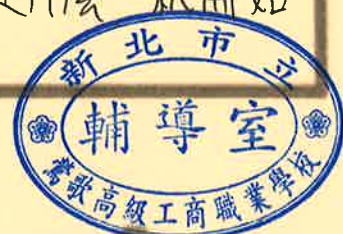 新北市立
輔導室
鶯歌高級工商職業學校